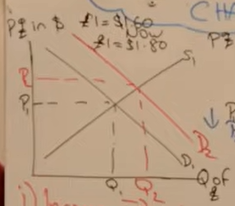 CHA
P£ in $ £1 = $1.60
Now
£1 = $1.80
P£
S₁
P₂
P₁
D₂
D₁
Q₁ Q₂ Q of
£